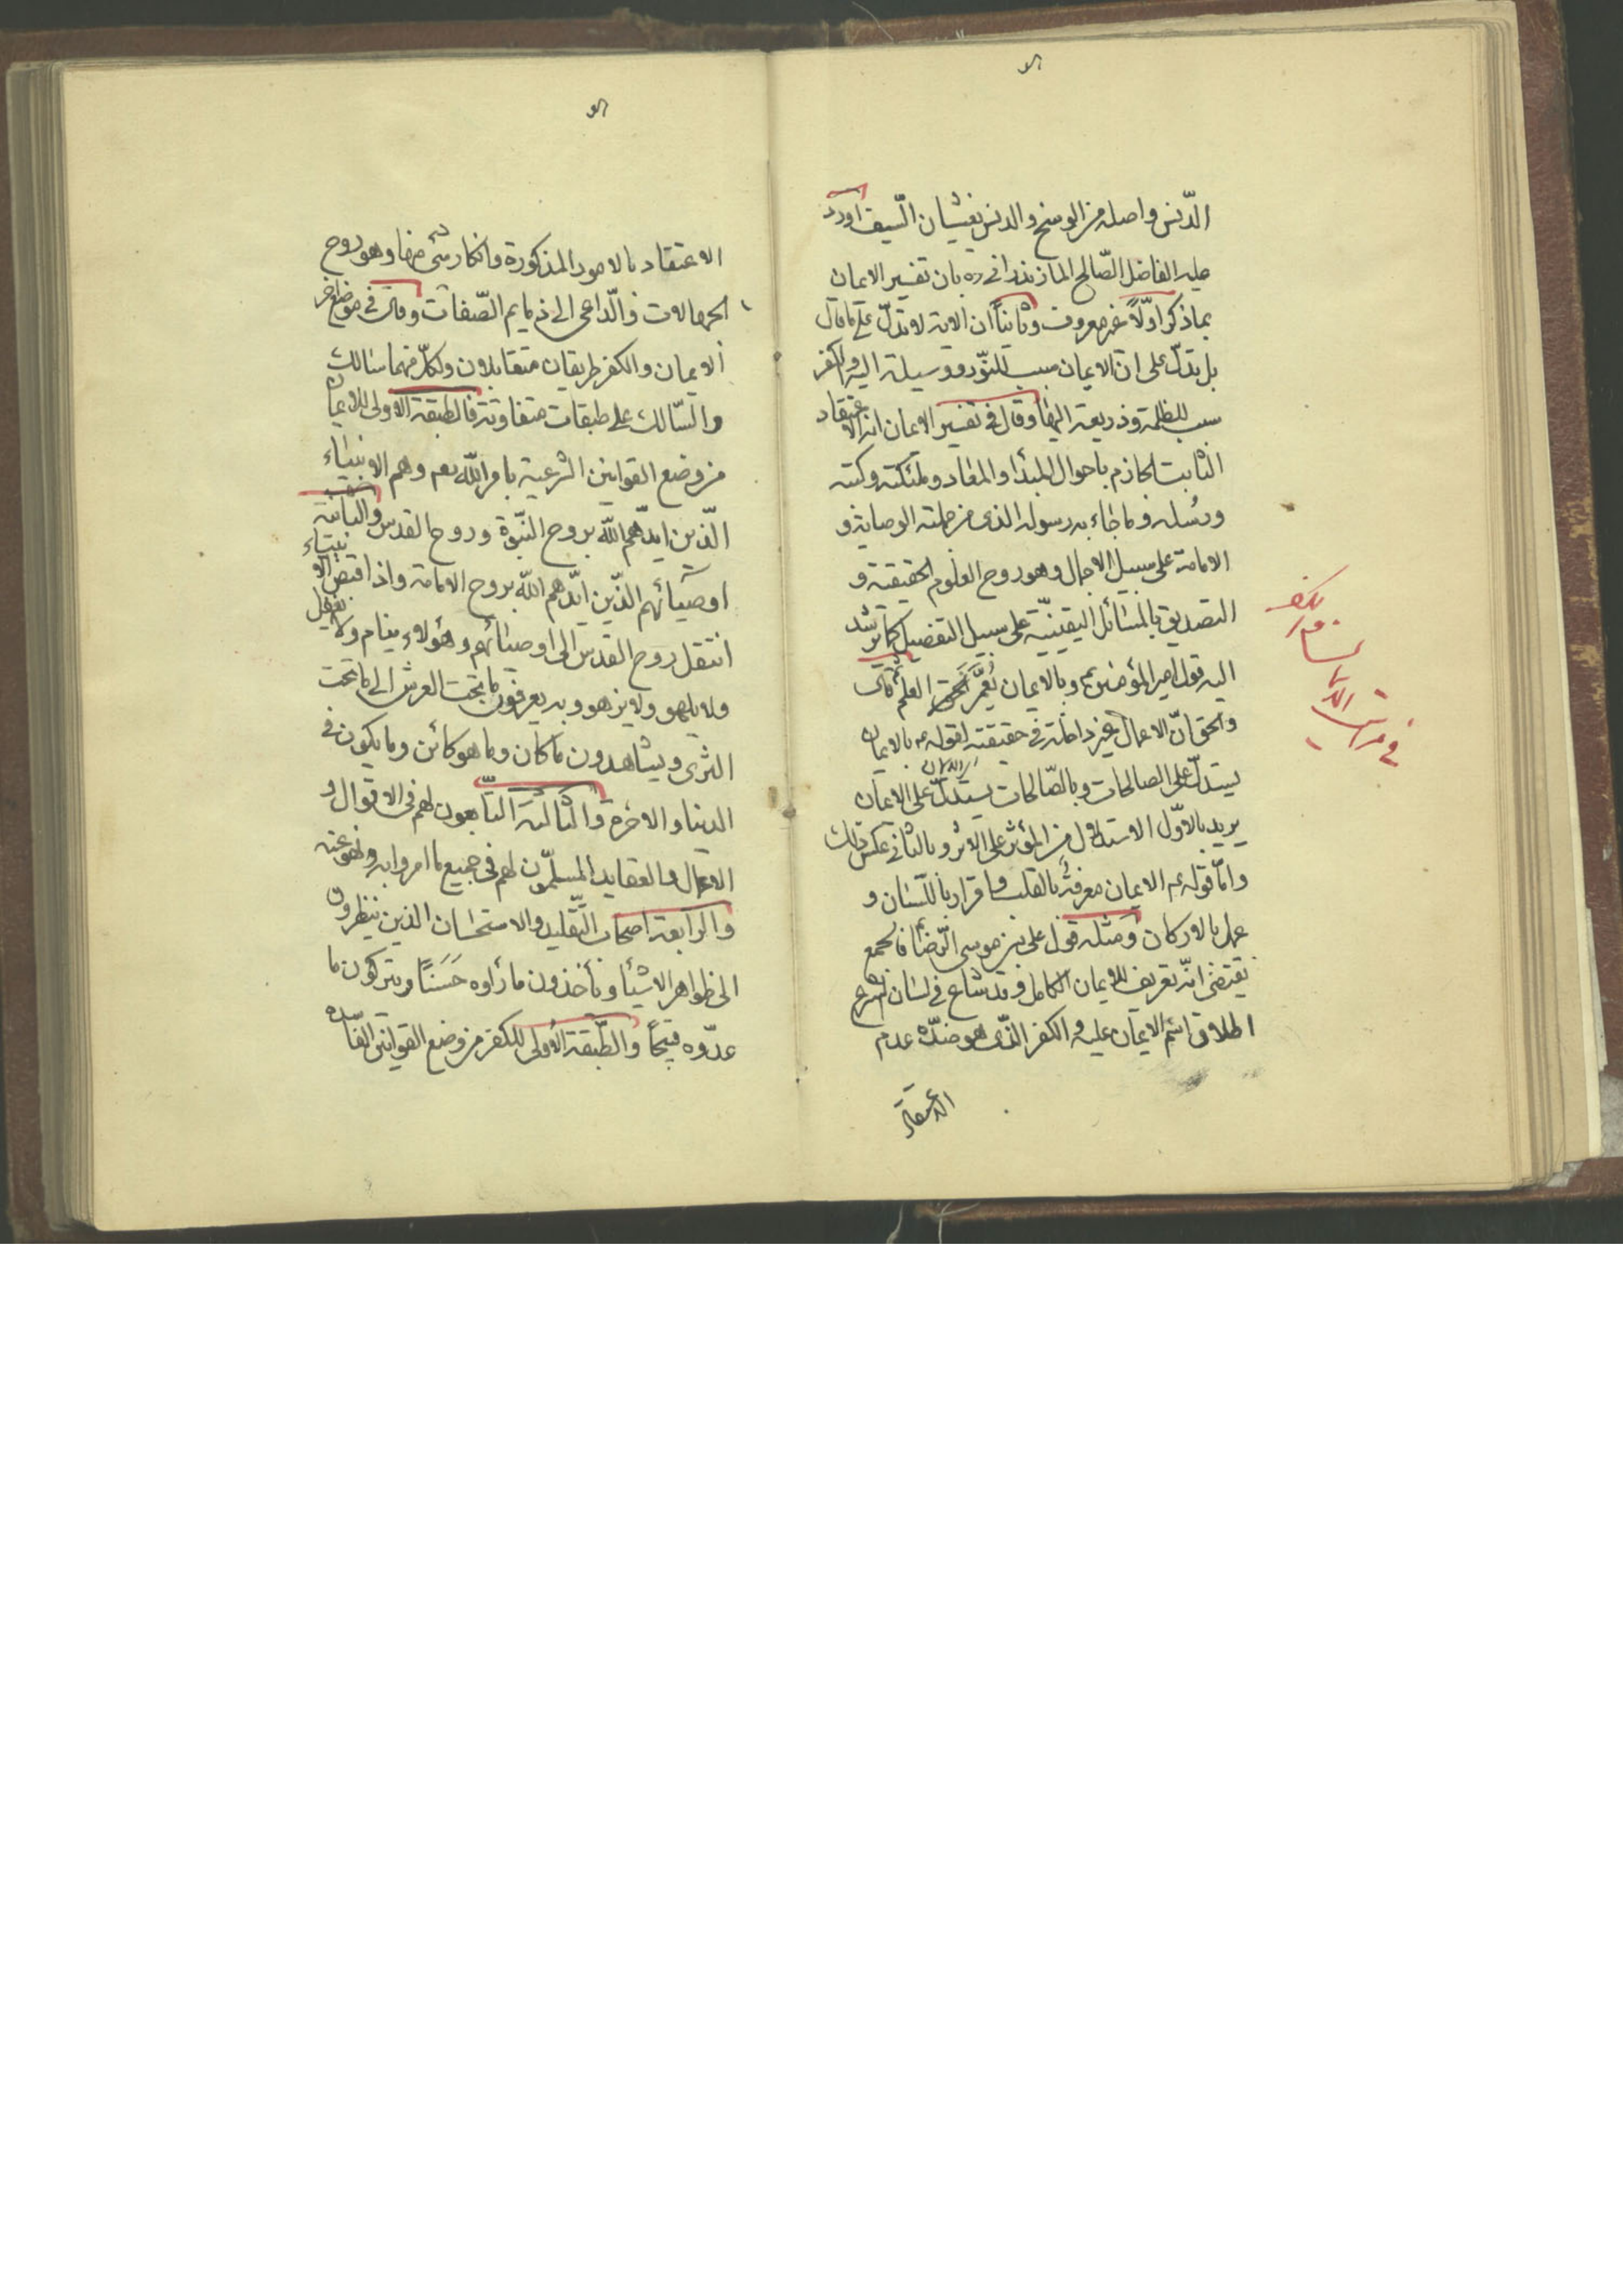 الدّنس واصله من الوسخ والدنس يغشيان السّيف اورد
عليه الفاضل الصّالح المازندرانى ره بان تفسير الايمان
بما ذكر اوّلاً غير معروف وثانياً ان الاية لا تدلّ على ما قال
بل تدلّ على انّ الايمان سبب للنّور ووسيلة اليه والكفر
سبب للظلمة وذريعة اليها وقال فى تفسير الايمان انه الاعتقاد
الثابت الجازم باحوال المبدأ والمعاد وملئكته وكتبه
ورسله وما جاء به رسوله الذى من جملته الوصاية و
الامامة على سبيل الاجمال وهو روح العلوم الحقيقية و
التصديق بالمسائل اليقينيّة على سبيل التفصيل كما يرشد
اليه قول امير المؤمنين ع وبالايمان يُعمَّر العلم ثم قال
والحق انّ الاعمال غير داخلة فى حقيقته لقوله ع بالايمان
يستدلّ على الصالحات وبالصّالحات يستدلّ على الايمان
يريد بالاوّل الاستدلال من المؤثر على الاثر وبالثانى عكس ذلك
وامّا قوله ع الايمان معرفة بالقلب واقرار باللّسان و
عمل بالاركان ومثله قول على بن موسى الرّضا فالجمع
يقتضى انّه تعريف للايمان الكامل وقد شاع فى لسان الشرع
اطلاق اسم الايمان عليه والكفر الذى هو ضدّه عدم
الاعتقاد
فى مراتب
الايمان
والكفر
الاعتقاد بالامور المذكورة وانكار شىء منها وهو روح
الجهالات والدّاعى الى ذمايم الصّفات وقال فى موضع اخر
الايمان والكفر طريقان متقابلان ولكلّ منهما سالك
والسّالك على طبقات متفاوتة فالطبقة الاولى للايمان
من وضع القوانين الشرعية بامر اللّه تعم وهم الانبياء
الّذين ايّدهم اللّه بروح النّبوّة وروح القدس والثانية
اوصيائهم الّذين ايّدهم اللّه بروح الامامة واذا قبض الانبياء
انتقل روح القدس الى اوصيائهم وهؤلاء ينام ولا يغفل
ولا يلهو ولا يزهو وبه يعرفون ما تحت العرش الى ما تحت
الثرى ويشاهدون ما كان وما هو كائن وما يكون فى
الدنيا والاخرة والثالثة التّابعون لهم فى الاقوال و
الاعمال والعقايد المسلّمون لهم فى جميع ما امروا به ونهو عنه
والرابعة اصحاب التّقليد والاستحسان الذين ينظرون
الى ظواهر الاشيأ ويأخذون ما رأوه حَسَنًا ويتركون ما
عدّوه قبيحًا والطّبقة الاُولى للكفر من وضع القوانين الفاسدة